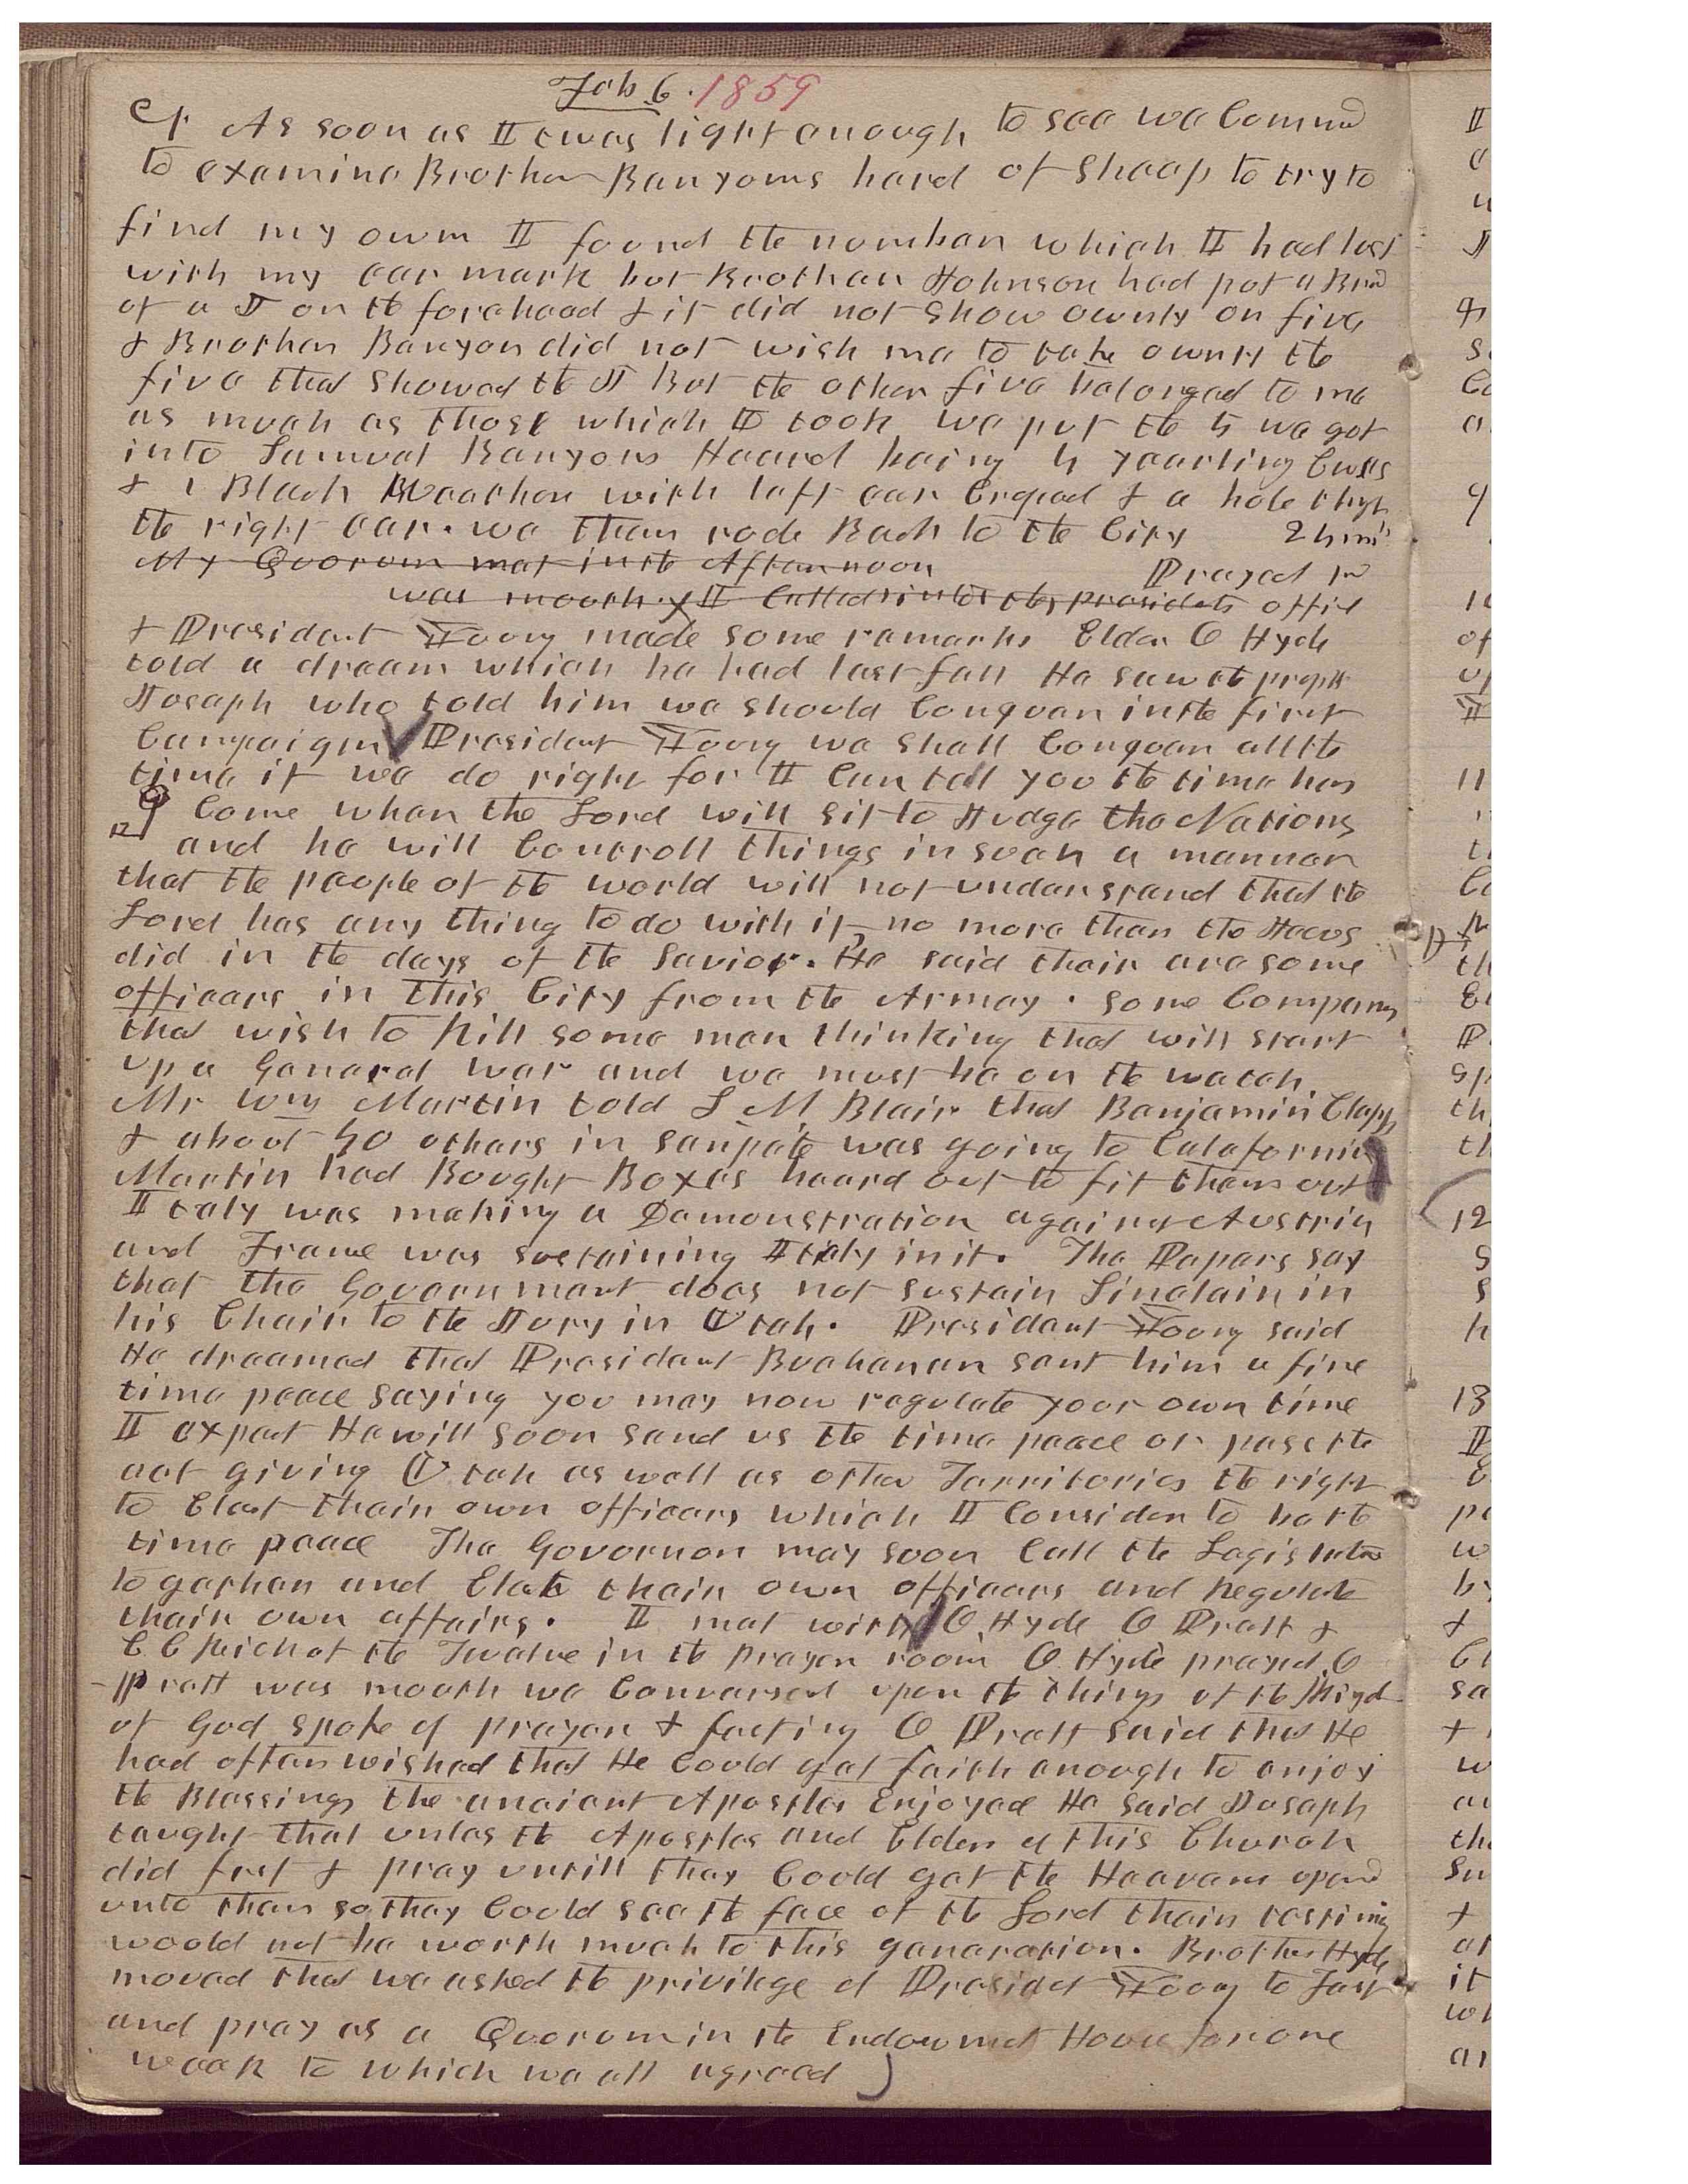 Feb 6. 1859
As soon as I twas light enough to see we Commend
to examine Brother Benyoms herd of Sheep to try to
find my own I found the number which I had lost
with my ear mark but Brother Johnson had put a Brand
of a J on the forehead & it did not show ownly on five
& Brother Benyon did not wish me to take ownly the
five that Showed the J But the other five belonged to me
as much as those which I took we put the 5 we got
into Samuel Benyons Heard being 4 yearling Ewes
& 1 Black Weather with left ear Croped & a hole through
the right ear. we then rode Back to the City 24 mi
My Quorum met in the Afternoon
Prayed
was mouth. I Called into the presidets office
& President Young made some remarks Elder O Hyde
told a dream which he had last fall He saw the prophet
Joseph who told him we should Conquer in the first
Campaign President Young we shall Conquer all the
time if we do right for I Can tell you the time has
12 9 Come when the Lord will sit to Judge the Nations
and he will Controll things in such a manner
that the people of the world will not understand that the
Lord has any thing to do with it, no more than the Jews
did in the days of the Savior. He said their are some
officers in this City from the Army. some Company
that wish to kill some man thinking that will start
up a General war and we must be on the watch.
Mr Wm Martin told S M Blair that Benjamin Clapp
& about 50 others in sanpete was going to Calafornia
Martin had Bought Boxes heard out to fit them out
Italy was making a Demonstration against Austria
and France was sustaining Italy in it. The Papers say
that the Government does not sustain Sinclair in
his Chair to the Jury in Utah. President Young said
He dreamed that President Buchanan sent him a fine
time peace saying you may now regulate your own time
I expect He will soon send us the time peace or pass the
act giving Utah as well as other Territories the right
to Elect their own officers which I Consider to be the
time peace The Governor may soon Call the Legislature
togather and Elect their own officers and Regulate
their own affairs. I met with O. Hyde O Pratt &
C C Rich of the Twelve in the prayer room O. Hyde prayed. O
Pratt was mouth we Conversed upon the things of the kingd
of God spoke of prayer & fasting O Pratt said that He
had often wished that He Could get faith enough to enjoy
the Blessings the ancient Apostles Enjoyed He said Joseph
taught that unless the Apostles and Elders of this Church
did fast & pray untill they Could get the Heavens opend
unto them so they Could see the face of the Lord their testimony
would not be worth much to this generation. Brother Hyde
moved that we asked the privilege of Presidet Young to Fast
and pray as a Quorum in the Endowmet House for one
week to which we all agreed